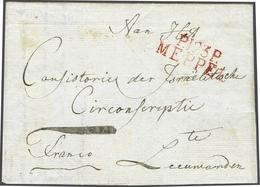 Aan Het
P123P
MEPPEL
Consistorie der Israelitische
Circonscriptie
te
Franco Leeuwarden